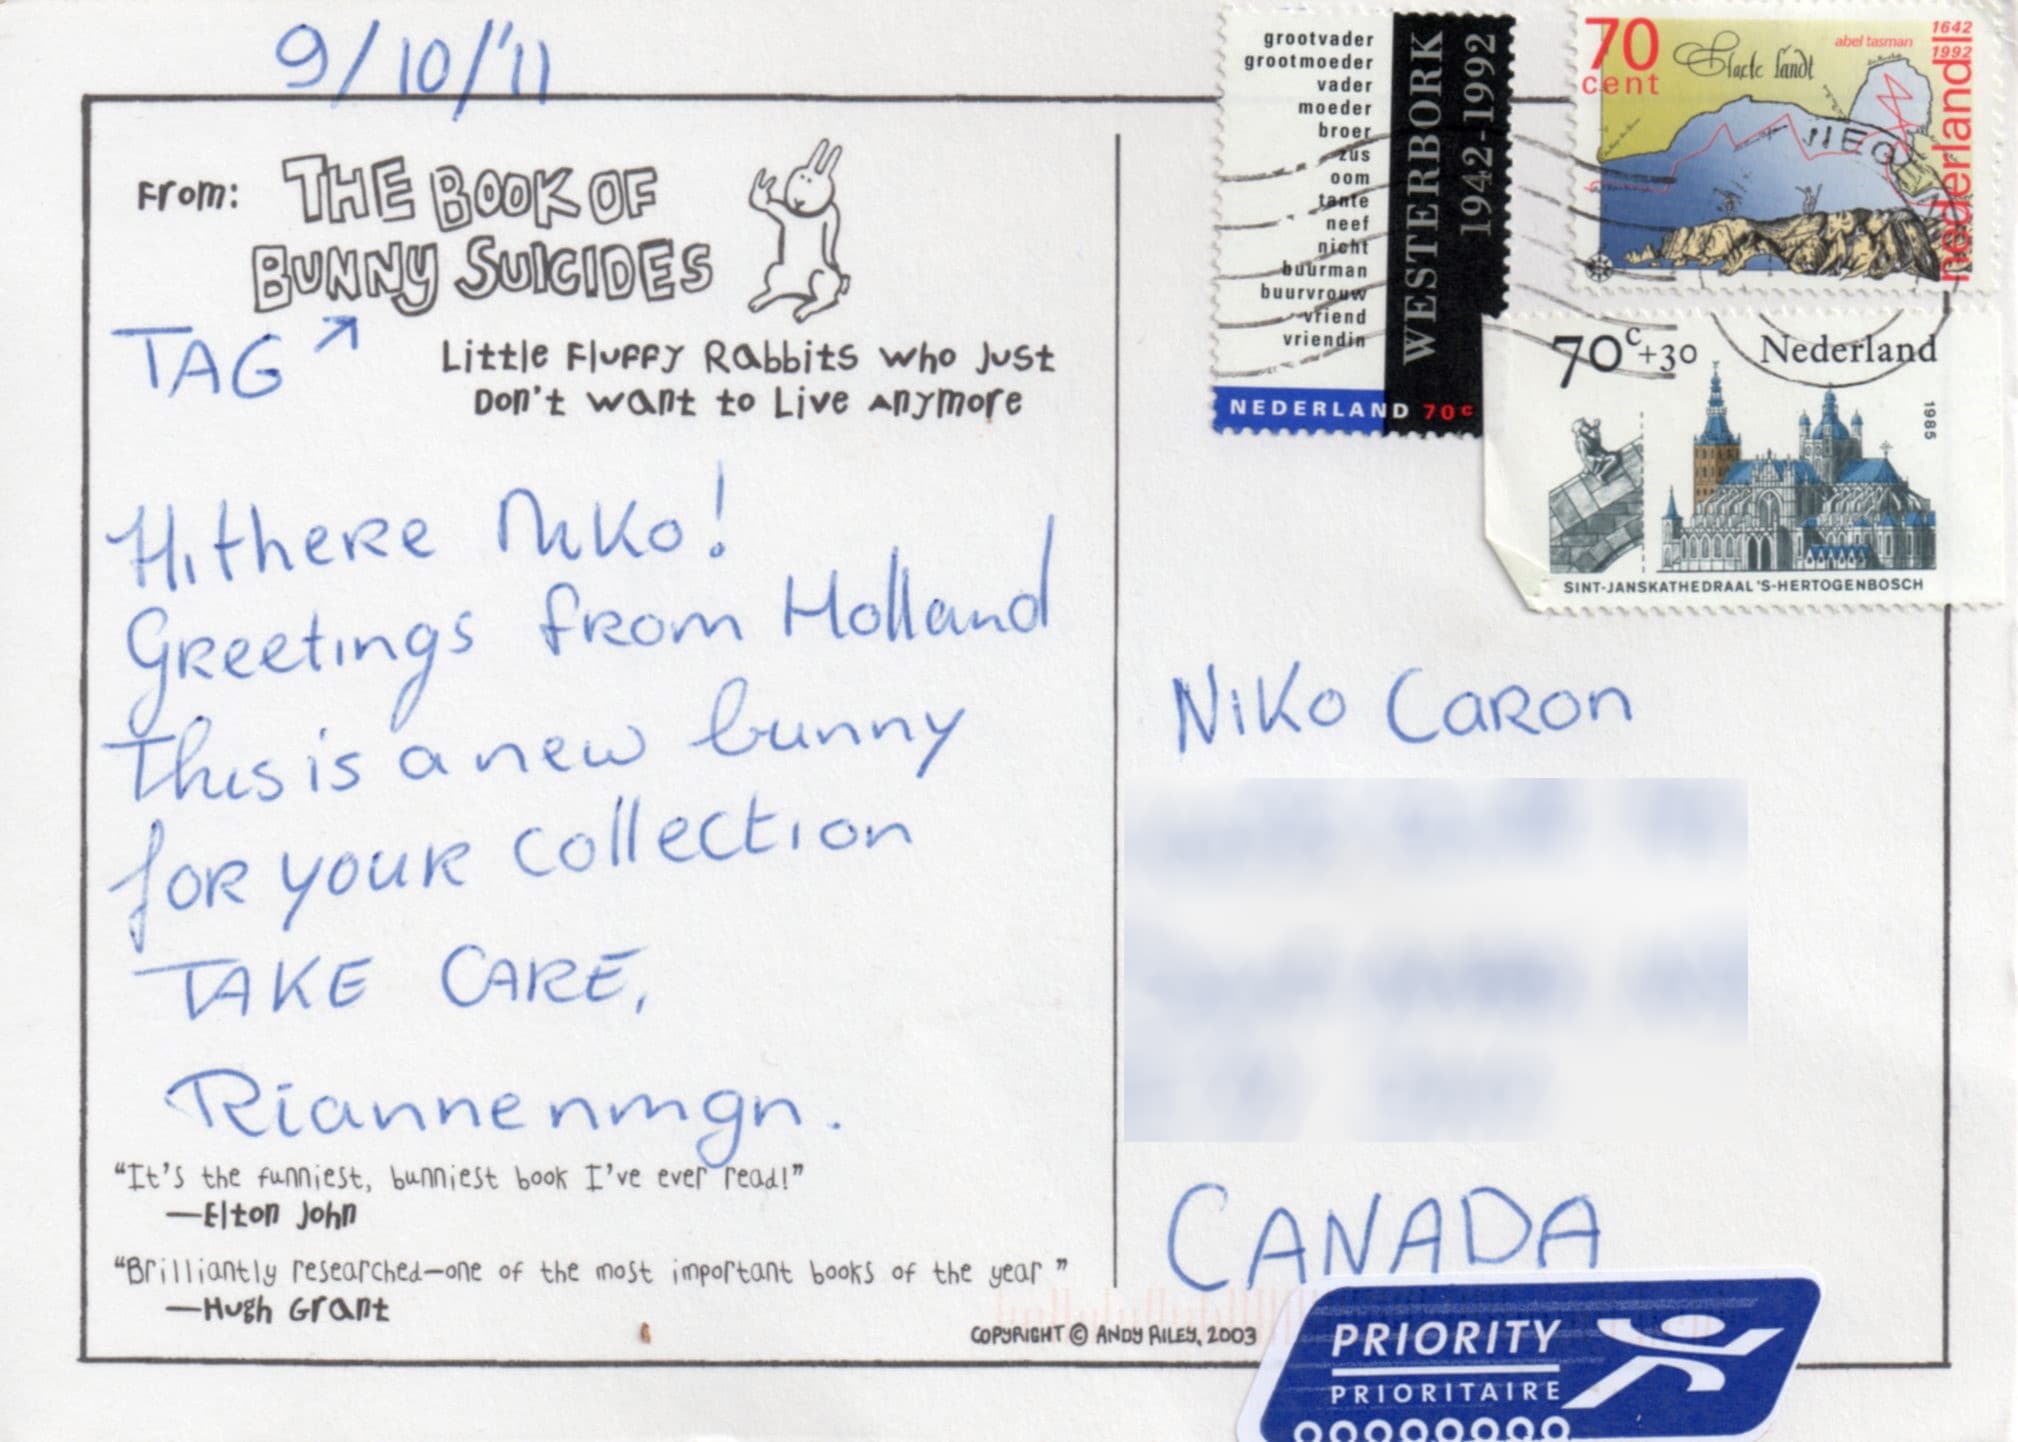 9/10/'11
From: THE BOOK OF
BUNNY SUICIDES
TAG
Little Fluffy Rabbits who Just
Don't want to Live Anymore
Hi there Niko!
Greetings from Holland
This is a new bunny
for your collection
TAKE CARE,
Riannenmgn.
"It's the funniest, bunniest book I've ever read!"
—Elton John
"Brilliantly researched—one of the most important books of the year"
—Hugh Grant
COPYRIGHT © ANDY RILEY, 2003
grootvader
grootmoeder
vader
moeder
broer
zus
oom
tante
neef
nicht
buurman
buurvrouw
vriend
vriendin
WESTERBORK
1942-1992
NEDERLAND 70c
70
cent
Staete landt
abel tasman
1642
1992
nederland
70c+30 Nederland
1985
SINT-JANSKATHEDRAAL 'S-HERTOGENBOSCH
Niko Caron
CANADA
PRIORITY
PRIORITAIRE